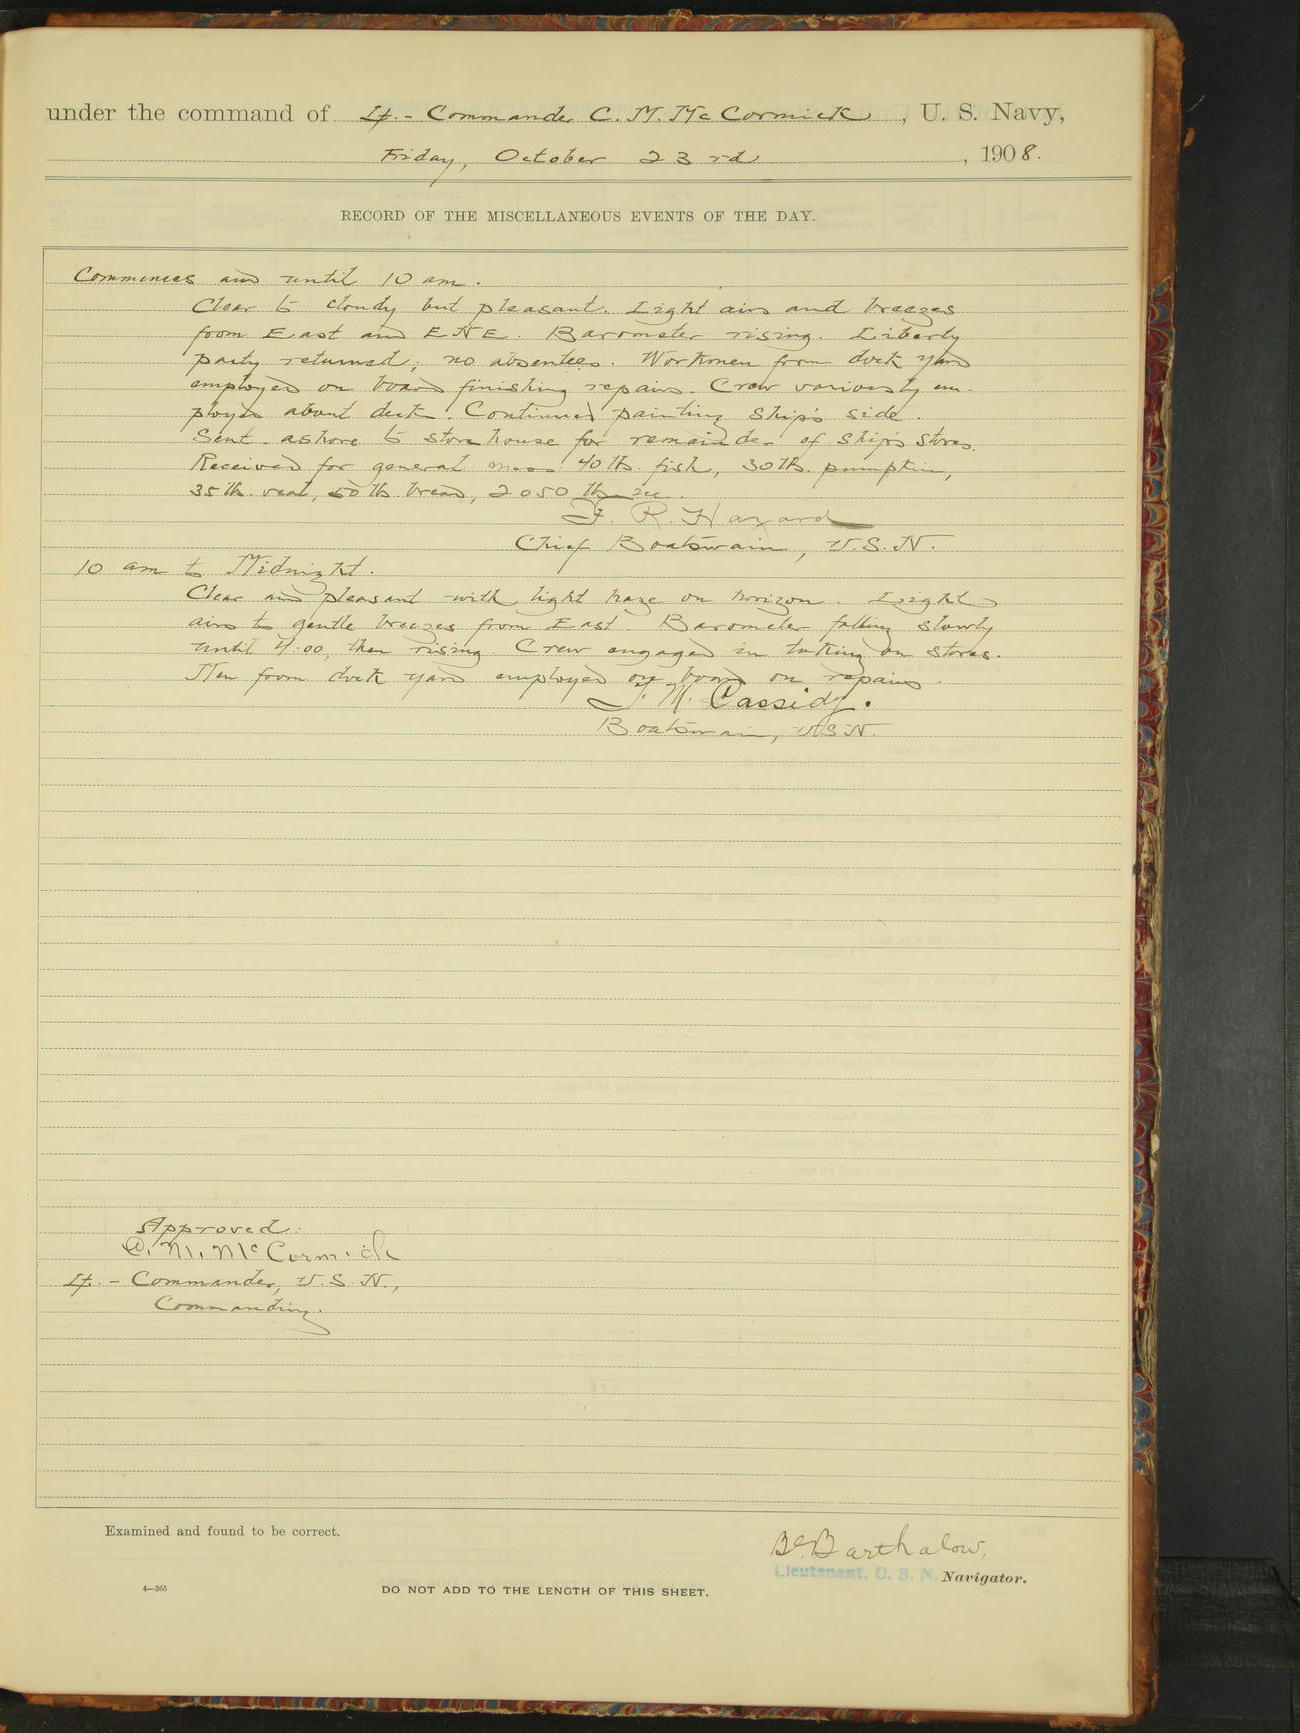 under the command of Lt.-Commander C. M. McCormick, U. S. Navy,
Friday, October 23rd, 1908.
RECORD OF THE MISCELLANEOUS EVENTS OF THE DAY.
Commences and until 10 am.
Clear to cloudy but pleasant. Light airs and breezes
from East and ENE. Barometer rising. Liberty
party returned; no absentees. Workmen from dock yard
employed on board finishing repairs. Crew variously em-
ployed about deck. Continued painting ship's side.
Sent ashore to store house for remainder of ship's stores.
Received for general mess 40 lb. fish, 30 lb. pumpkin,
35 lb. veal, 50 lb. bread, 2050 lb ice.
F. R. Hazard
Chief Boatswain, U.S.N.
10 am to Midnight.
Clear and pleasant with light haze on horizon. Light
airs to gentle breezes from East. Barometer falling slowly
until 4:00, then rising. Crew engaged in taking on stores.
Men from dock yard employed on board on repairs.
J. M. Cassidy.
Boatswain, USN.
Approved:
C. M. McCormick
Lt.-Commander, U.S.N.,
Commanding.
Examined and found to be correct.
Barthalow,
Lieutenant, U. S. N. Navigator.
4—265
DO NOT ADD TO THE LENGTH OF THIS SHEET.